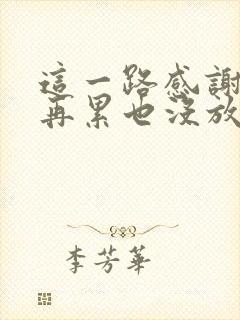 這一路感謝
再累也沒放
李芳華